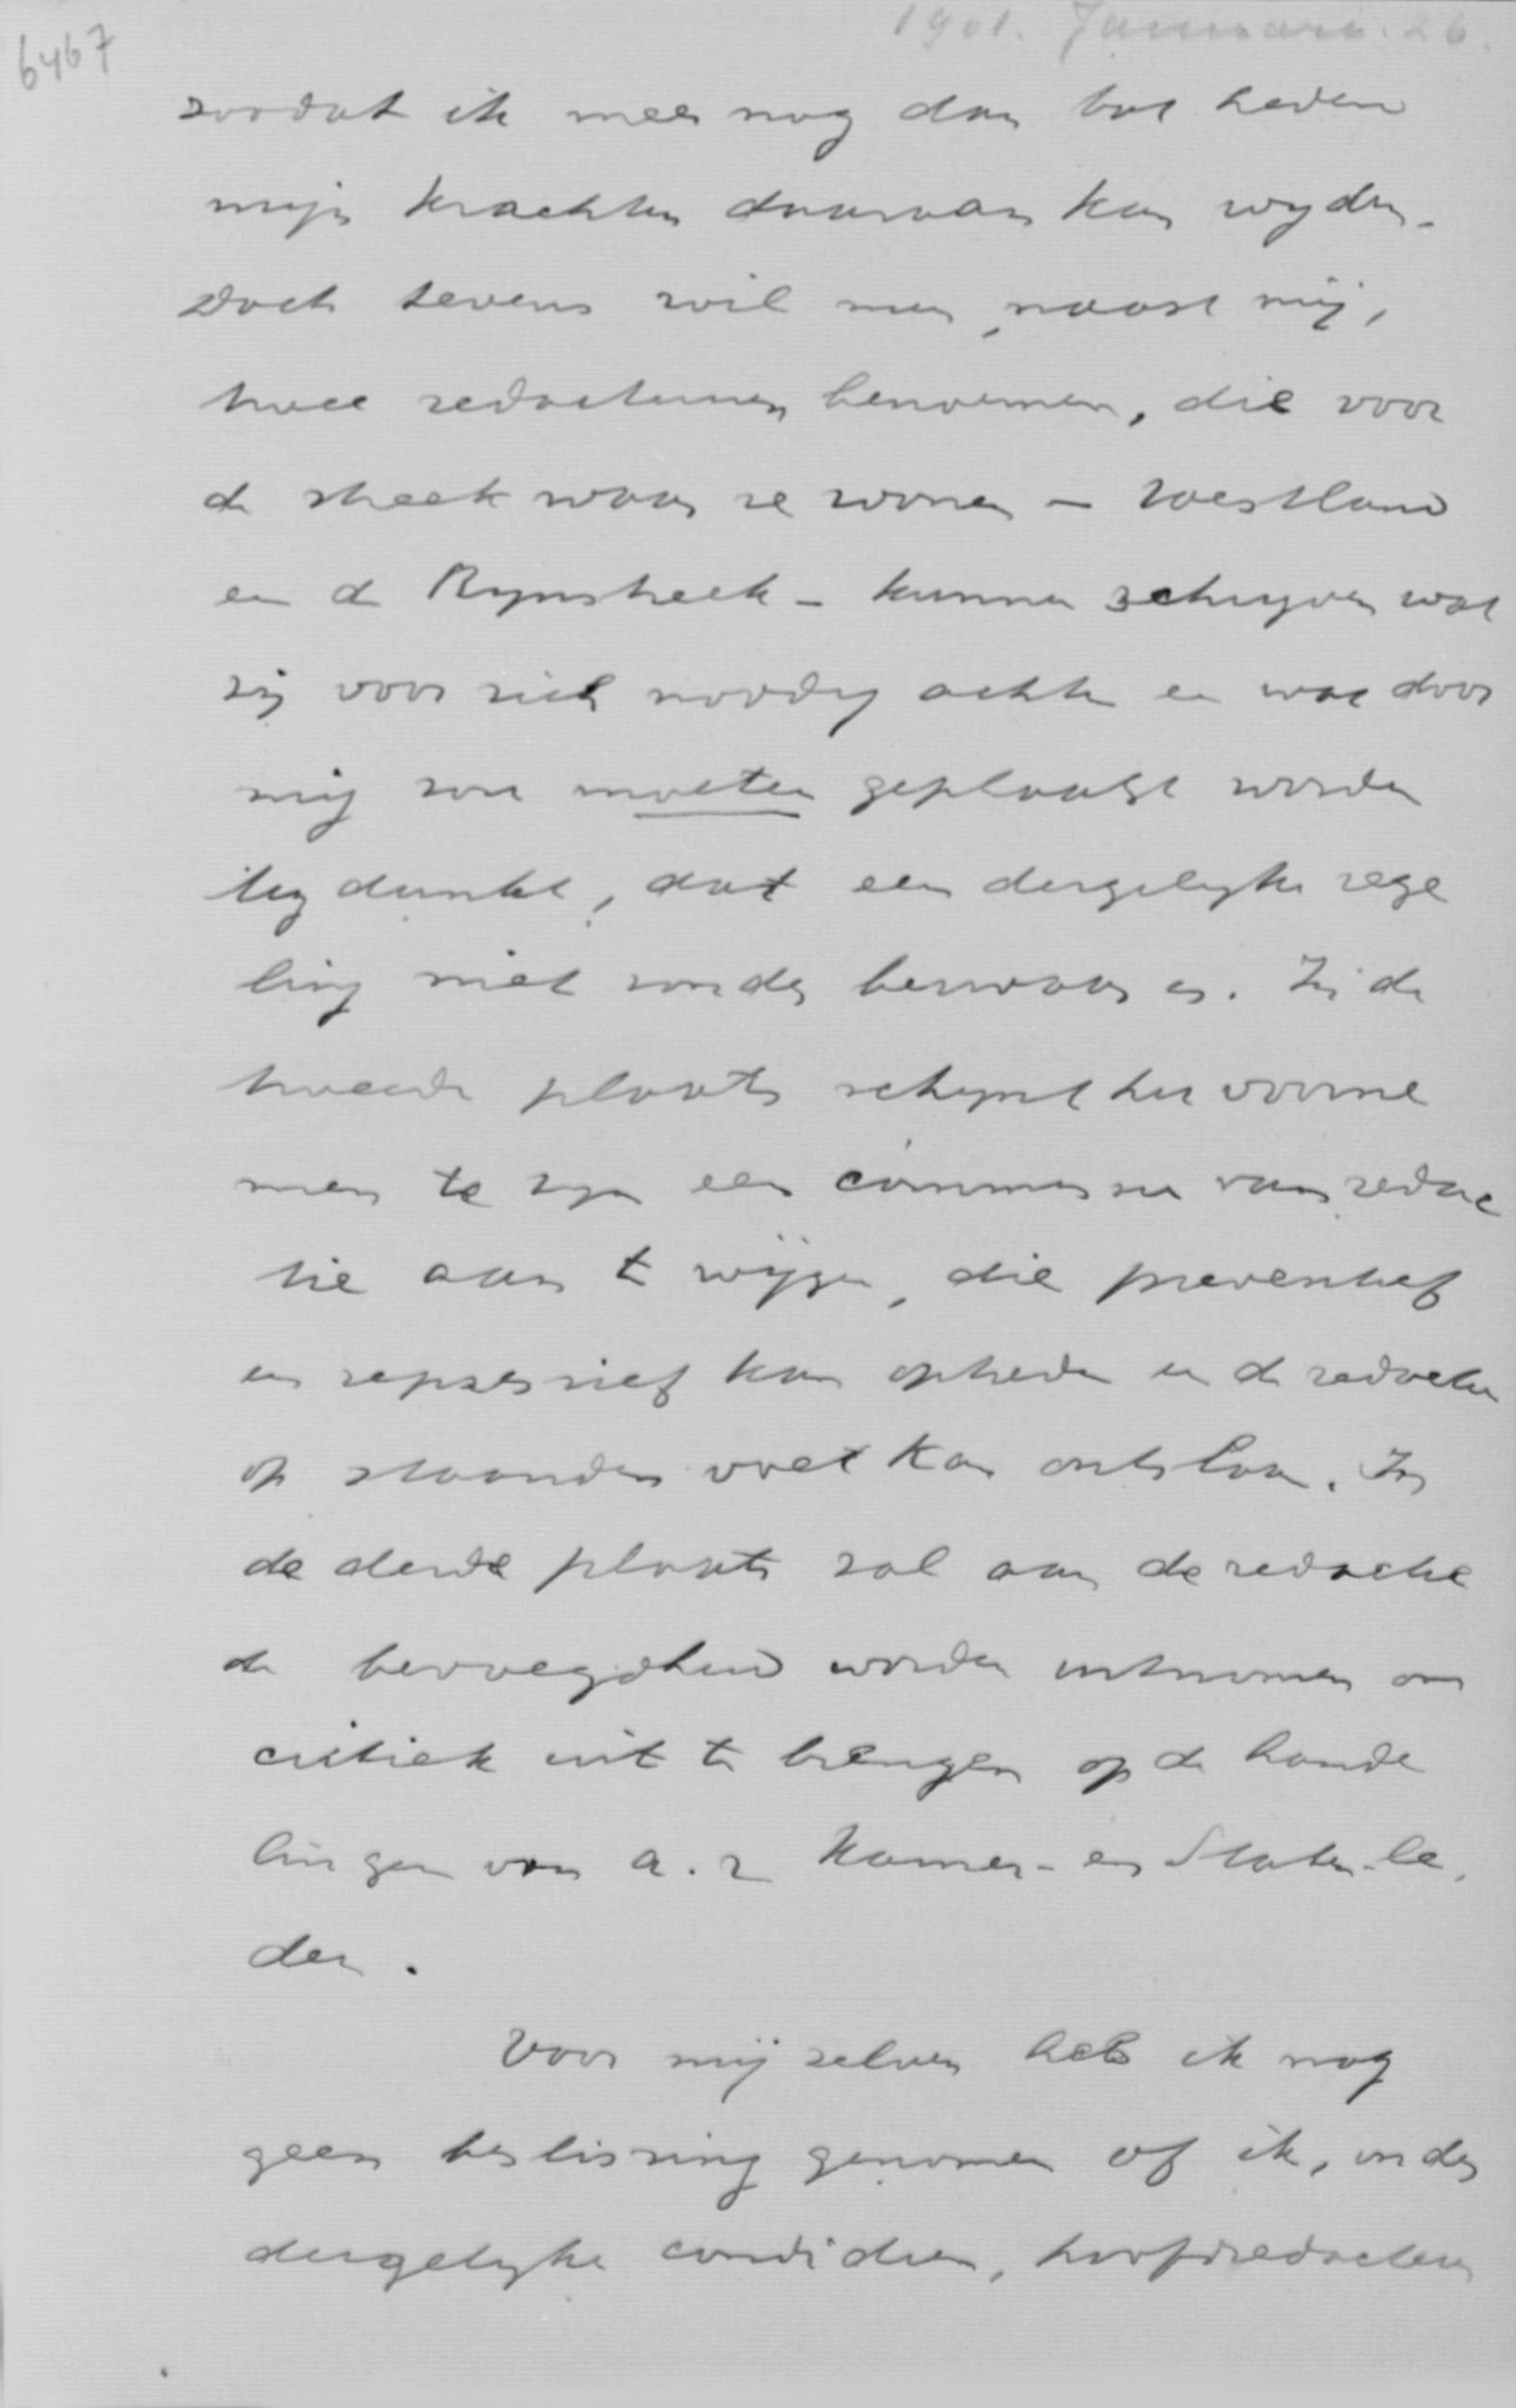 6467
1901. Januari. 26.
zoodat ik meer nog dan tot heden
mijn krachten daaraan kan wyden.
Doch tevens wil men, naast mij,
twee redacteuren benoemen, die voor
de streek waar ze wonen – Westland
en de Rynstreek – kunnen schryven wat
zij voor zich noodig achten en wat door
mij zou moeten geplaatst worden
My dunkt, dat een dergelyke rege
ling niet zonder bezwaar is. In de
tweede plaats schynt het voorne
men te zyn een commissie van redac
tie aan te wijzen, die preventief
en repressief kan optreden en de redacteur
op staanden voet kan ontslaan. In
de derde plaats zal aan de redactie
de bevoegdheid worden ontnomen om
critiek uit te brengen op de hande
lingen van a. r Kamer- en Staten-le,
den.
Voor mij zelven heb ik nog
geen beslissing genomen of ik, onder
dergelyke conditien, hoofdredacteur